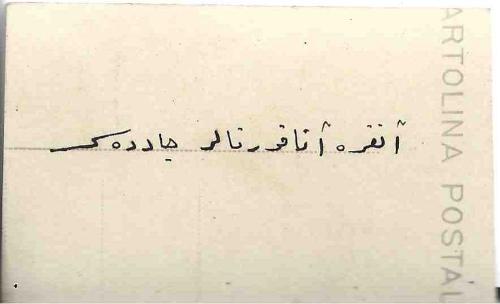 آنقره آنافورتالر جاددەسی
CARTOLINA POSTAL